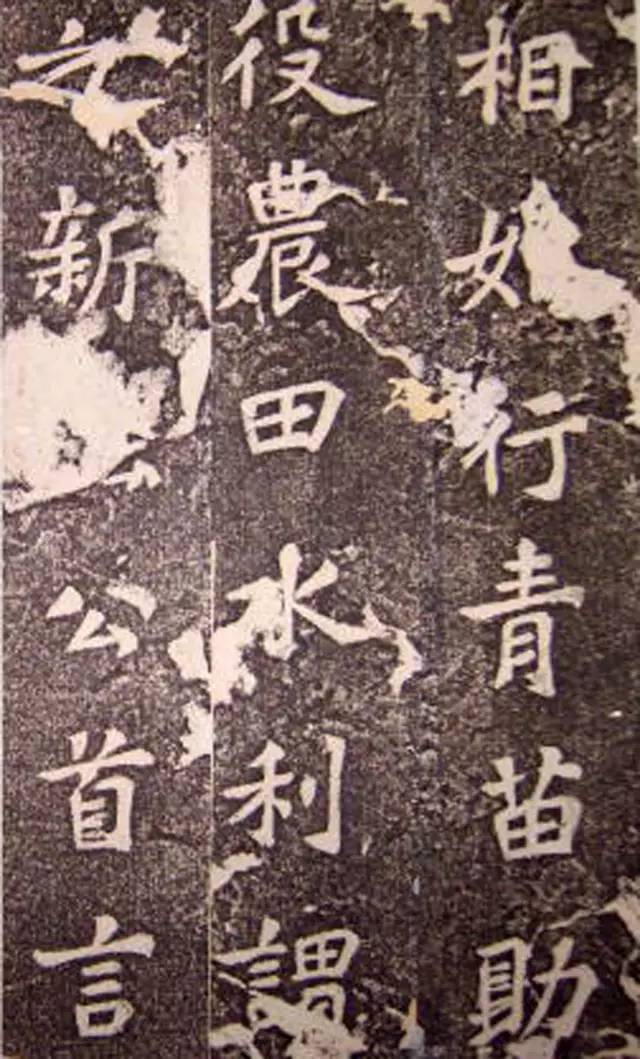 相行青苗助
役農田水利謂
之新公首言